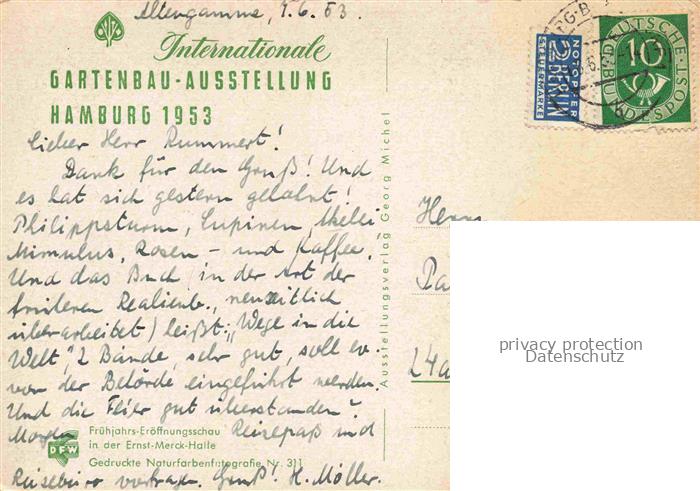 Altengamme, 1.6.53.
Internationale
GARTENBAU-AUSSTELLUNG
HAMBURG 1953
Lieber Herr Rummert!
Dank für den Gruß! Und
es hat sich gestern gelohnt!
Philippsturm, Lupinen, Akelei
Mimulus, Rosen – und Kaffee.
Und das Buch (in der Art der
früheren Realienb., neuzeitlich
überarbeitet) heißt: „Wege in die
Welt", 2 Bände, sehr gut, soll ev.
von der Behörde eingeführt werden.
Und die Feier gut überstanden?
Morgen Reisepaß und
Reisebüro vortragen. Gruß! H. Möller.
DFW
Frühjahrs-Eröffnungsschau
in der Ernst-Merck-Halle
Gedruckte Naturfarbenfotografie Nr. 311
Ausstellungsverlag Georg Michel
NOTOPFER
2 BERLIN
STEUERMARKE
DEUTSCHE
10
BUNDESPOST
Herrn
24a
privacy protection
Datenschutz